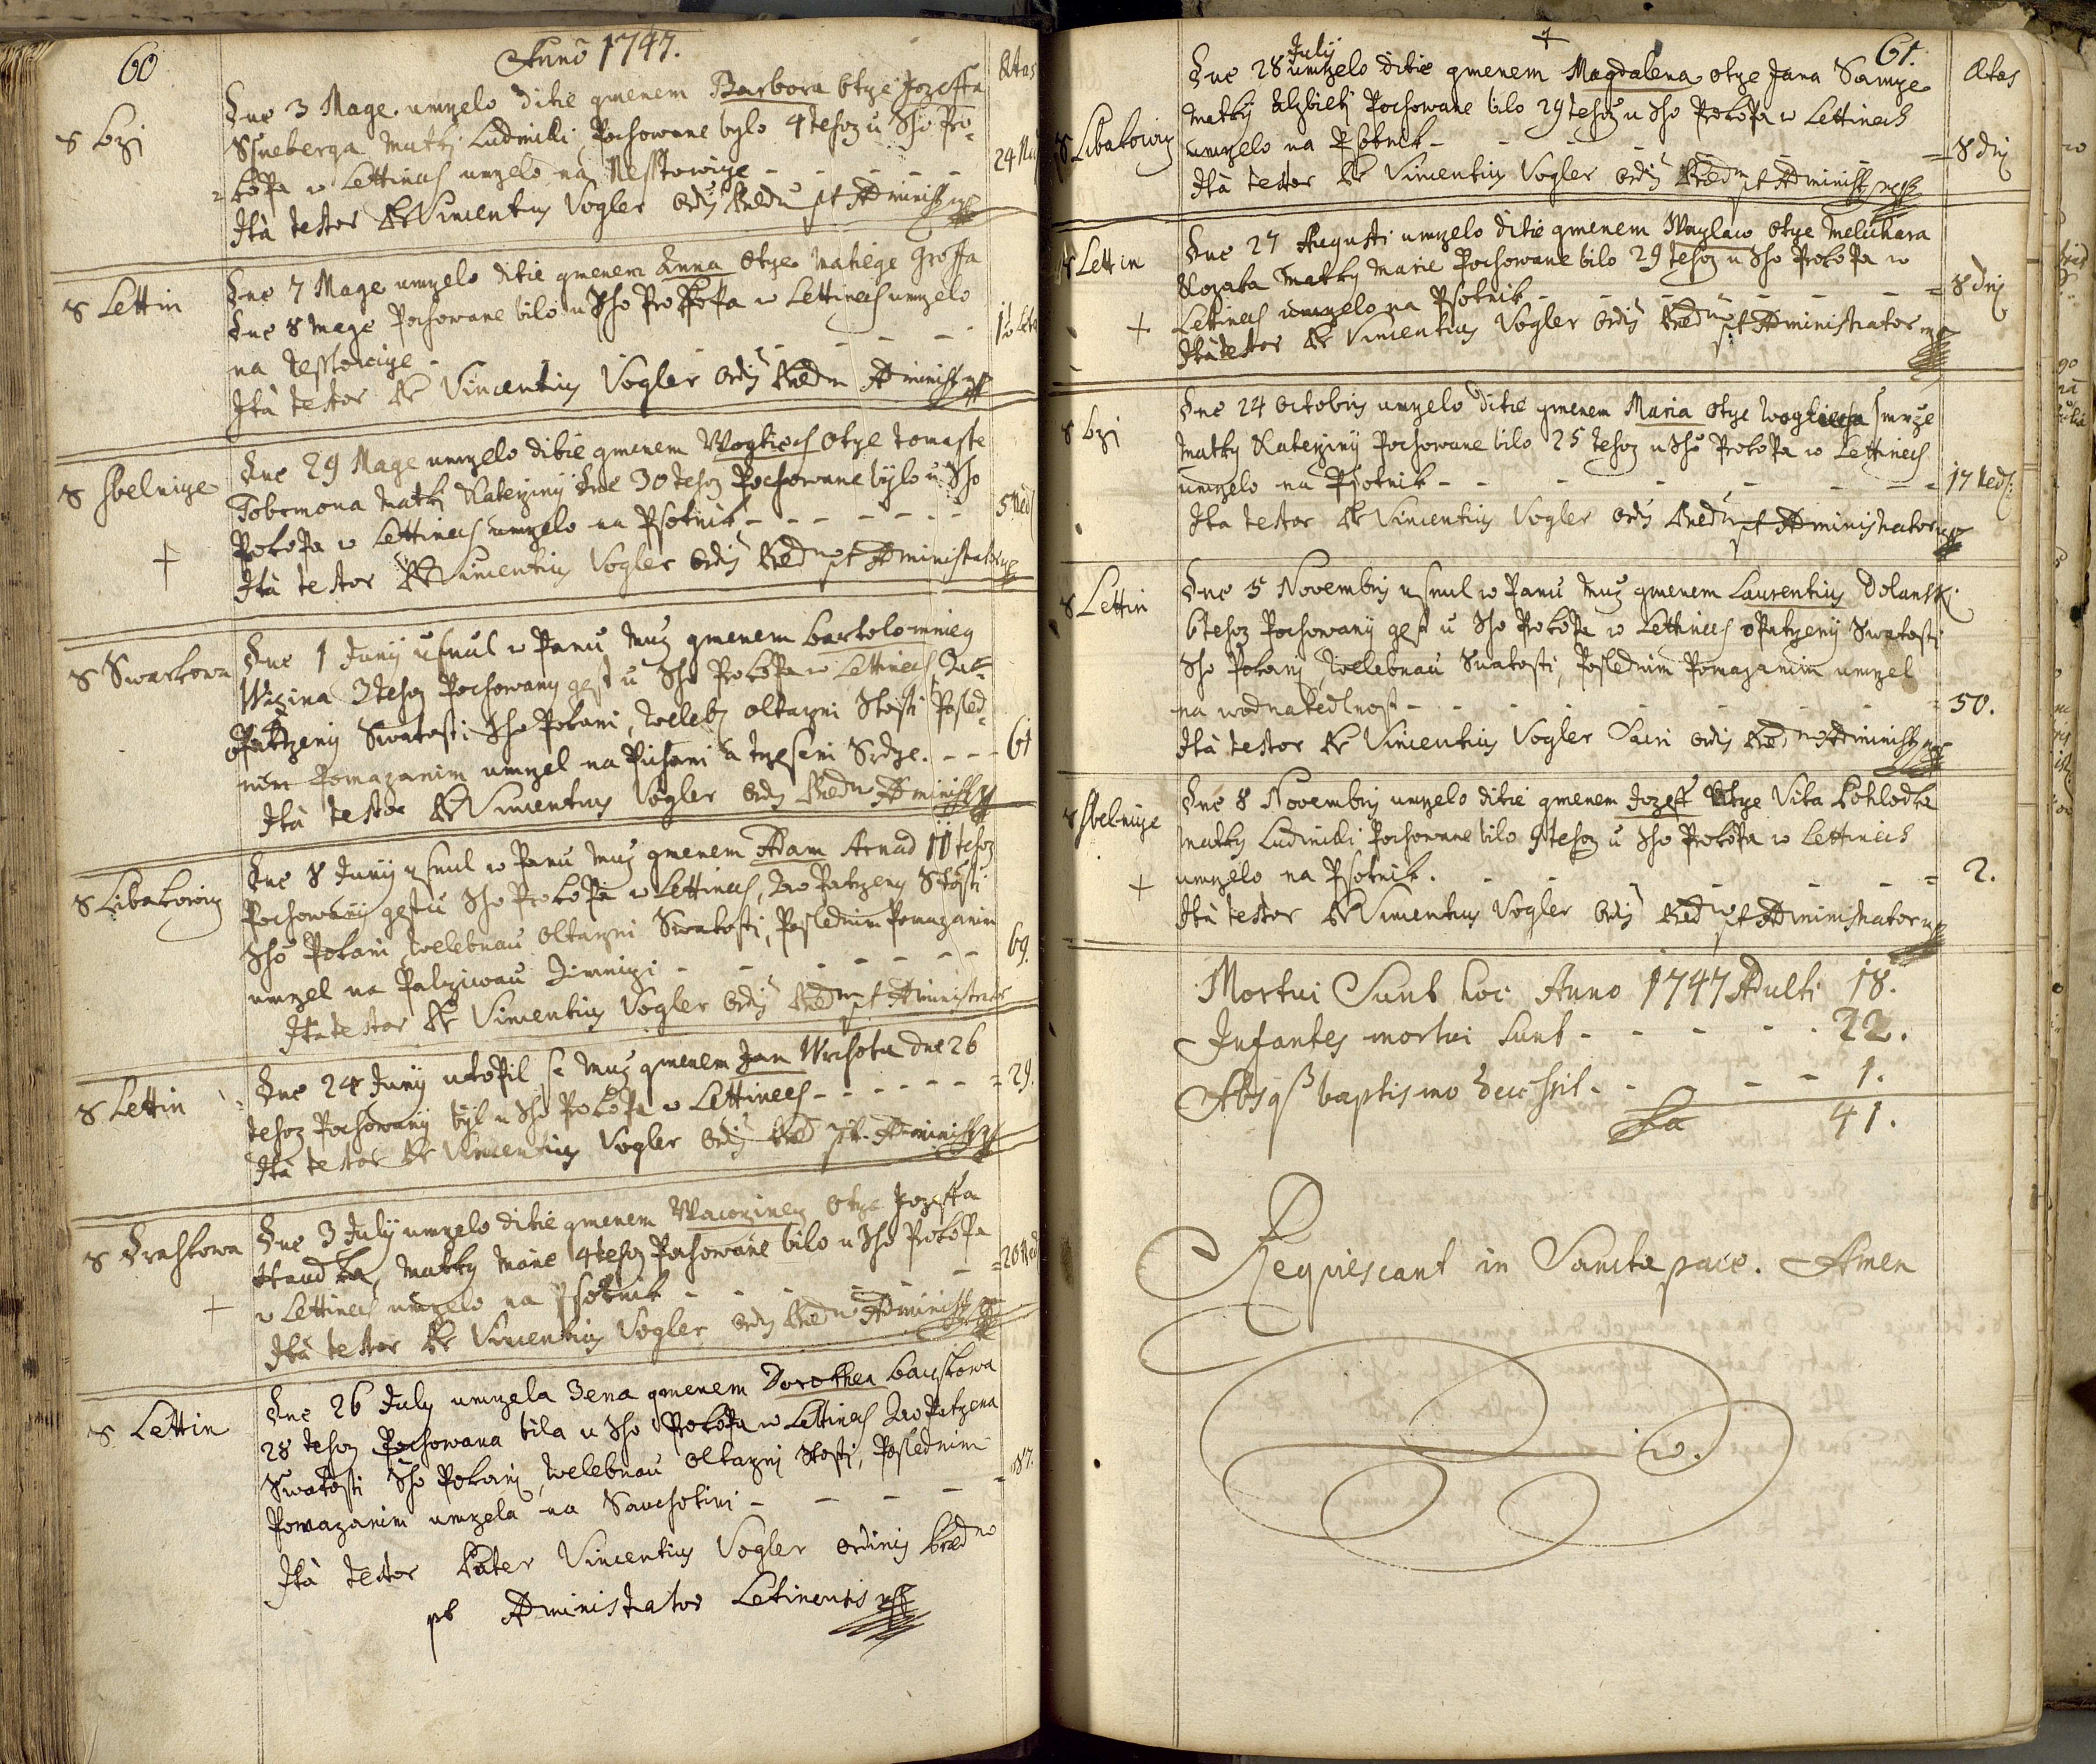 60
Anno 1747.
Ætas
S Lzi
Dne 3 Mage umrzelo ditie gmenem Barbora otcze Jozeffa
Ssneberga Matki Ludmilli Pochowane bylo 4 tehoz u Sho Pro-
kopa w Lettinach umrzelo na Nesstowicze - - - - -
Ità testor Pr Vincentius Vogler Ordis Præd pt Administ mp
S Lettin
Dne 7 Mage umrzelo ditie gmenem Anna Otcze Matiege Groffa
Dne 8 Mage Pochowane bilo u Sho Prokopa w Lettinach umrzelo
na Nesstowicze - - - - - -
Ità testor Pr Vincentius Vogler Ordis Præd Administ mp
S Sbelnicze
Dne 29 Mage umrzelo ditie gmenem Wogtiech Otcze Tomasse
Matki Katerziny Dne 30 tehoz Pochowane bylo u Sho
Prokopa w Lettinach umrzelo na Psotnik - - - - - -
5 Ned
Ità testor Pr Vincentius Vogler Ordis Præd pt Administrator mp
S Swarkowa
Dne 1 Juny usnul w Panu Muz gmenem Bartolomnieg
3 tehoz Pochowany gest u Sho Prokopa w Lettinach Za-
opatrzeny Swatosti Sho Pokani, Weleb Oltarzni Stosti Posled-
nim Pomazanim umrzel na Pichani a trzeseni Srdcze. - - -
61
Ità testor Pr Vincentius Vogler Ordis Præd Administ mp
S Libakowicz
Dne 8 Juny usnul w Panu Muz gmenem Adam Arnad 11 tehoz
Pochowany gest u Sho Prokopa w Lettinach, Zaopatrzeny Stosti
Sho Pokani, Welebnau Oltarzni Swatosti, Poslednim Pomazanim
umrzel na Palcziwau Zimniczi - - - - - -
69.
Ità testor Pr Vincentius Vogler Ordis Præd pt Administrator
S Lettin
Dne 24 Juny utopil se Muz gmenem Jan Wrchota dne 26
tehoz Pochowany byl u Sho Prokopa w Lettinach - - - - - -
29.
Ità testor Pr Vincentius Vogler Ordis Præd pt. Administ mp
S Drahkowa
Dne 3 July umrzelo ditie gmenem Wawrzinecz Otcze Jozeffa
Matky Marie 4 tehoz Pochowane bilo u Sho Prokopa
w Lettinach umrzelo na Psotnik - - - - -
20 Ned
Ità testor Pr Vincentius Vogler Ordis Præd Administ mp
S Lettin
Dne 26 July umrzela Zena gmenem Dorothea
28 tehoz Pochowana bila u Sho Prokopa w Lettinach Zaopatrzena
Swatosti Sho Pokani, Welebnau Oltarzni Stosti, Poslednim
Pomazanim umrzela na Sauchotini - - - -
87.
Ità testor Pater Vincentius Vogler Ordinis Præd
pt Administrator Letinensis mp
61.
Ætas
S Libakowicz
Dne 28 July umrzelo ditie gmenem Magdalena otcze Jana
Matky Alzbieti Pochowane bilo 29 tehoz u Sho Prokopa w Lettinach
umrzelo na Psotnik - - - - - -
8 dni
Ità testor Pr Vincentius Vogler Ordis Præd pt Administ mp
S Lettin
Dne 27 Augusti umrzelo ditie gmenem Waczlaw Otcze Melichara
Kozaka Matky Marie Pochowane bilo 29 tehoz u Sho Prokopa w
Lettinach umrzelo na Psotnik - - - - - -
8 dni
Ità testor Pr Vincentius Vogler Ordis Præd pt Administrator mp
S Lzi
Dne 24 Octobris umrzelo ditie gmenem Maria Otcze Wogtiecha
Matky Katerziny Pochowane bilo 25 tehoz u Sho Prokopa w Lettinach
umrzelo na Psotnik - - - - - - -
17 Ned:
Ita testor Pr Vincentius Vogler Ordis Præd pt Administrator mp
S Lettin
Dne 5 Novembris usnul w Panu Muz gmenem Laurentius Dolansk.
6 tehoz Pochowany gest u Sho Prokopa w Lettinach opatrzeny Swatosti
Sho Pokani, Welebnau Swatosti, Poslednim Pomazanim umrzel
na wodnatedlnost - - - - - -
50.
Ità testor Pr Vincentius Vogler Sacri Ordis Præd Administ mp
S Sbelnicze
Dne 8 Novembris umrzelo ditie gmenem Jozeff Otcze Vita
Matky Ludmilli Pochowane bilo 9 tehoz u Sho Prokopa w Lettinach
umrzelo na Psotnik. - - - - - -
2.
Ità testor Pr Vincentius Vogler Ordis Præd pt Administrator mp
Mortui Sunt hoc Anno 1747 Adulti 18.
Infantes mortui sunt - - - - - - 22.
Absq baptismo decessit - - - - 1.
41.
Requiescant in Sancta pace. Amen